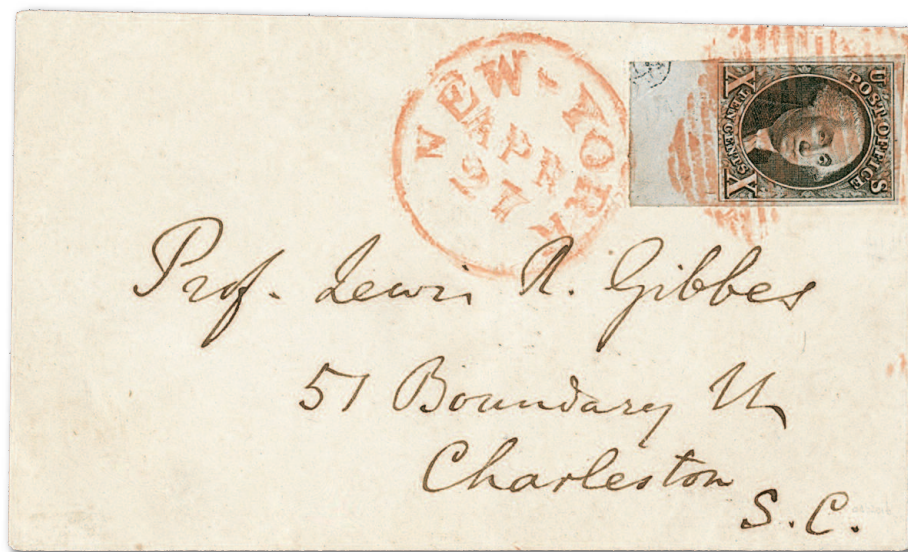 NEW-YORK
APR
27
U S
POST OFFICE
X TEN CENTS X
Prof. Lewis R. Gibbes
51 Boundary St
Charleston
S.C.